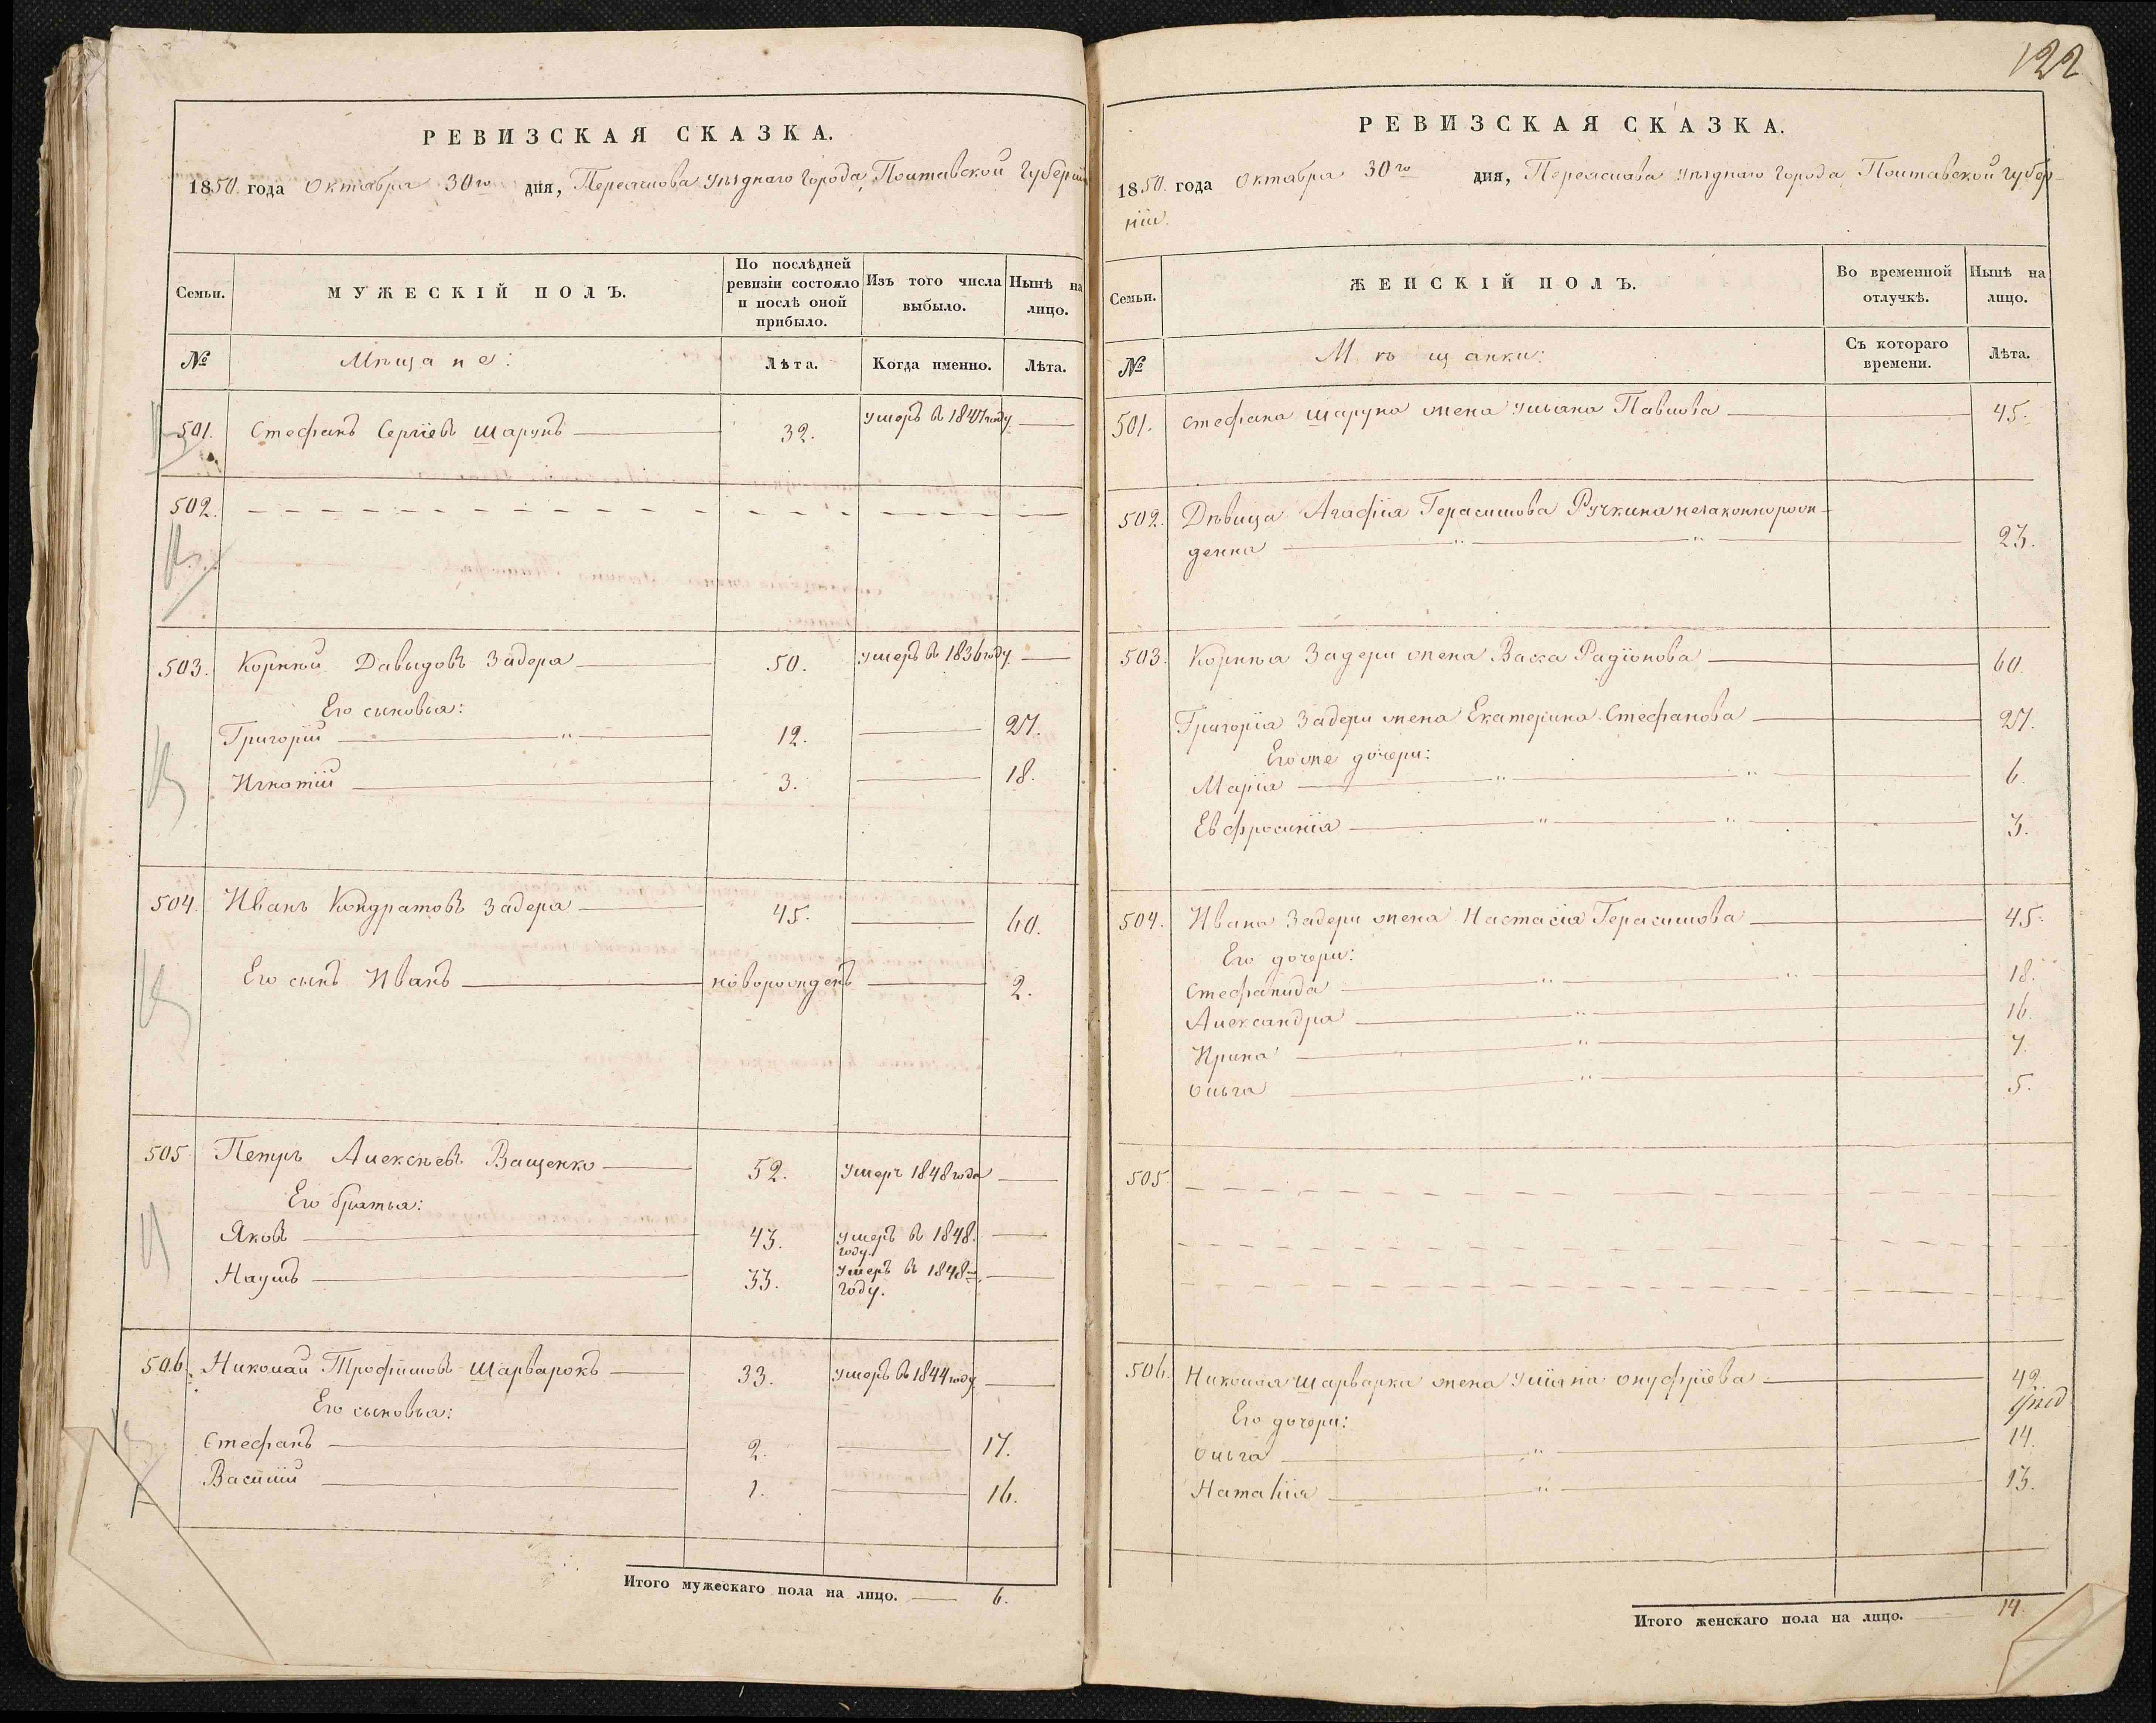 РЕВИЗСКАЯ СКАЗКА.
1850. года Октября 30го дня, Переяслова уѣзднаго города, Полтавской Губерніи
Семьи. МУЖЕСКІЙ ПОЛЪ. По послѣдней ревизіи состояло и послѣ оной прибыло. Изъ того числа выбыло. Нынѣ на лицо.
№ Мѣщане: Лѣта. Когда именно. Лѣта.
501. Стефанъ Сергіевъ Шарунъ 32. умеръ въ 1847 году
502.
503. Корнѣй Давыдовъ Задера 50. умеръ въ 1836 году
Его сыновья:
Григорій " 12. 27.
Игнатій 3. 18.
504. Иванъ Кондратовъ Задера 45. 60.
Его сынъ Иванъ новорожденъ 2.
505 Петръ Алексѣевъ Ващенко 52. Умеръ 1848 года
Его братья:
Яковъ 43. умеръ въ 1848.
году.
Наумъ 33. Умеръ въ 1848м
году.
506. Николай Трофимовъ Шарварокъ 33. умеръ въ 1844 году
Его сыновья:
Стефанъ 2. 17.
Василій 1. 16.
Итого мужескаго пола на лицо. 6.
122
РЕВИЗСКАЯ СКАЗКА.
1850. года Октября 30го дня, Переяслава уѣзднаго города Полтавской губер-
ніи.
Семьи. ЖЕНСКІЙ ПОЛЪ. Во временной отлучкѣ. Нынѣ на лицо.
№ Мѣщанки: Съ котораго времени. Лѣта.
501. Стефана Шаруна жена Ульяна Павлова 45.
502. Дѣвица Агафія Герасимова Ручкина незаконнорож-
денна " " 23.
503. Корнѣя Задери жена Васса Радіонова 60.
Григорія Задери жена Екатерина Стефанова 27.
Его же дочери:
Марія " " 6.
Евфросинія " " 3.
504. Ивана Задери жена Настасія Герасимова 45.
Его дочери:
Стефанида " " 18.
Александра " 16.
Ирина " 7.
Ольга " 5.
505.
506. Николая Шарварка жена Уліяна Онуфріева 42.
Его дочери:
Ольга " 14.
Наталія " 13.
Итого женскаго пола на лицо. 14.